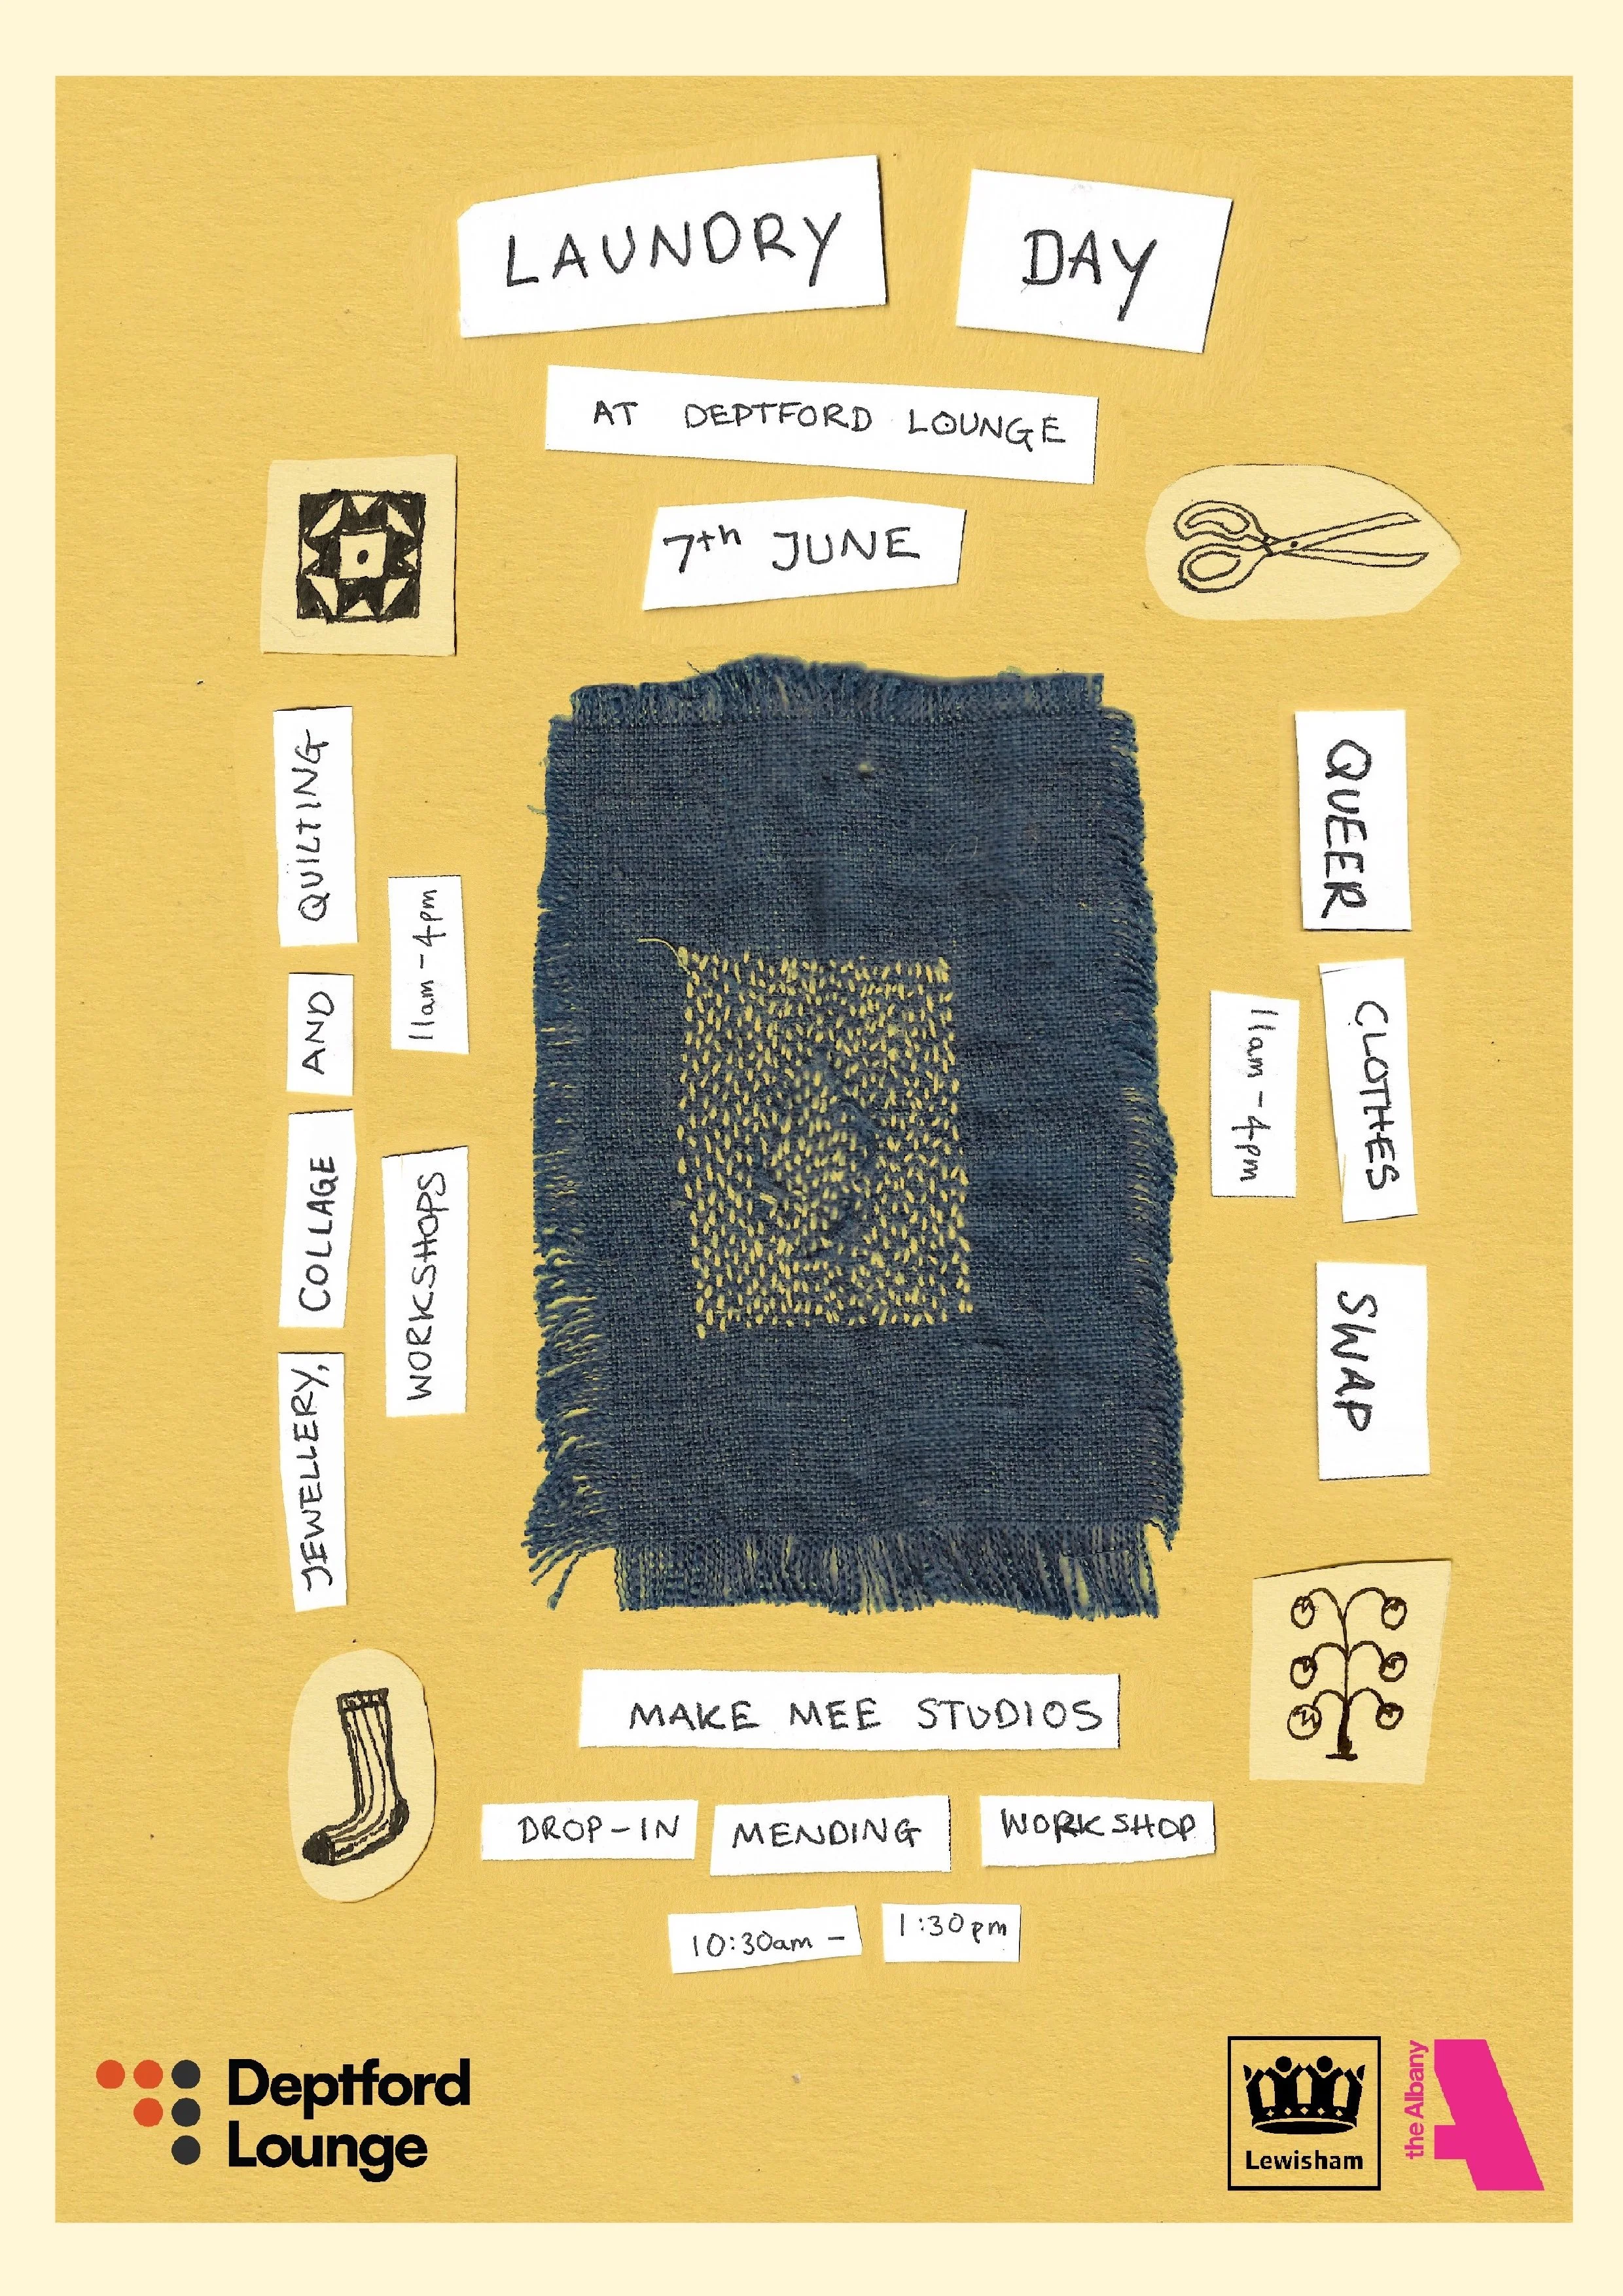 LAUNDRY DAY
AT DEPTFORD LOUNGE
7th JUNE
JEWELLERY, COLLAGE AND QUILTING
WORKSHOPS 11am-4pm
QUEER CLOTHES SWAP
11am-4pm
MAKE MEE STUDIOS
DROP-IN MENDING WORKSHOP
10:30am - 1:30pm
Deptford
Lounge
Lewisham
the Albany